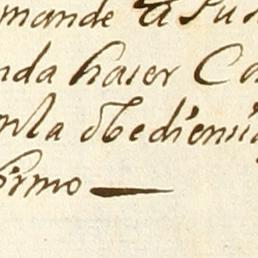 mande
nda haser Co
en la Obediensia
firmo